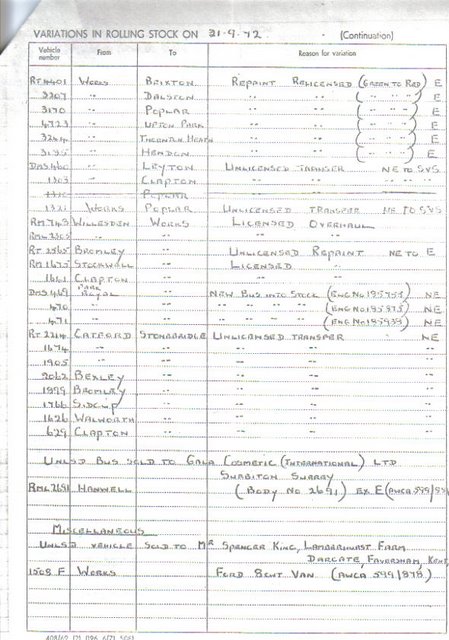 VARIATIONS IN ROLLING STOCK ON 21-9-72 (Continuation)
Vehicle number From To Reason for variation
RT 4401 WORKS BRIXTON REPAINT RELICENSED (GREEN TO RED) E
3207 " DALSTON " " ( " " " ) E
3170 " POPLAR " " ( " " " ) E
4723 " UPTON PARK " " ( " " " ) E
3254 " THORNTON HEATH " " ( " " " ) E
" HENDON " " ( " " " ) E
DMS 460 " LEYTON UNLICENSED TRANSFER NE TO SVS
1303 " CLAPTON " " "
POPLAR
WORKS POPLAR UNLICENSED TRANSFER NE TO SVS
RM 743 WILLESDEN WORKS LICENSED OVERHAUL
RML
RT 2565 BROMLEY " UNLICENSED REPAINT NE TO E
RM 1675 STOCKWELL " LICENSED "
1661 CLAPTON " " "
DMS 469 PARK ROYAL " NEW BUS INTO STOCK (ENG NO ) NE
470 " " " " " " (ENG NO ) NE
471 " " " " " " (ENG NO ) NE
RT 2214 CATFORD STONEBRIDGE UNLICENSED TRANSFER NE
1674 " " " " "
1905 " " " " "
2062 BEXLEY " " " "
1899 BROMLEY " " " "
1766 SIDCUP " " " "
1626 WALWORTH " " " "
629 CLAPTON " " " "
UNLSD BUS SOLD TO GALA COSMETIC (INTERNATIONAL) LTD
SURBITON SURREY
RML 2691 HANWELL (BODY NO 2691) EX E (AWCA 599/
MISCELLANEOUS
UNLSD VEHICLE SOLD TO MR SPENCER KING, LAMBERHURST FARM
DARGATE, FAVERSHAM, KENT,
1508 F WORKS FORD 8CWT VAN (AWCA 599/878)